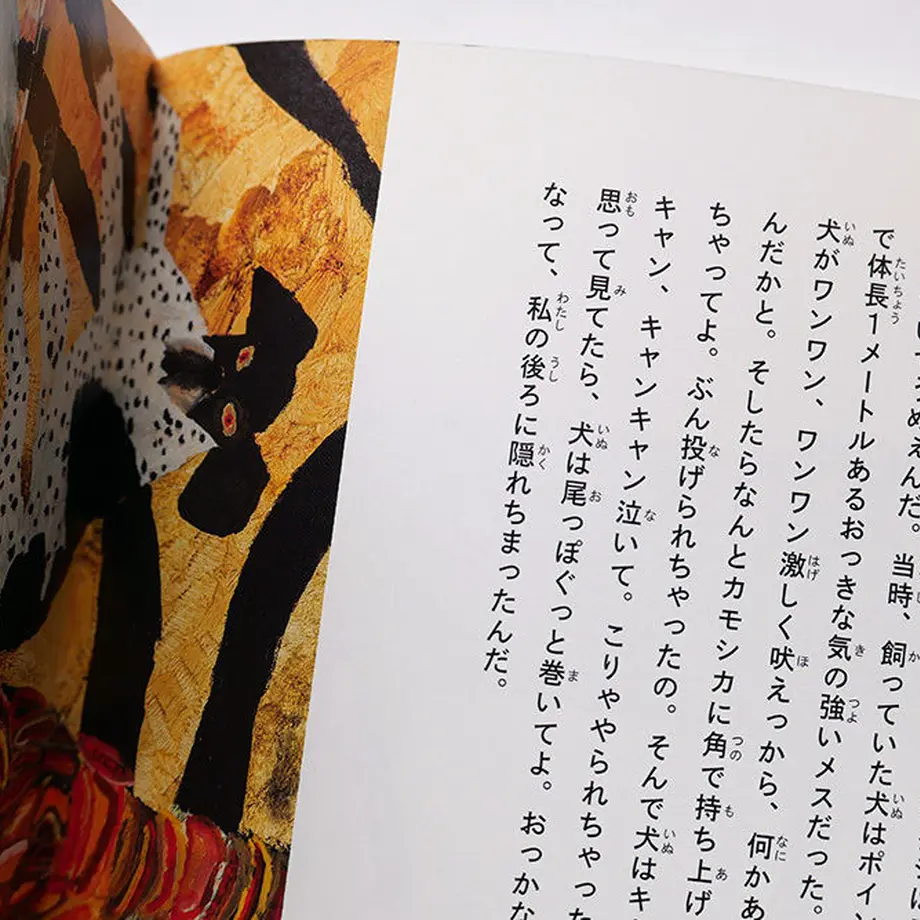 えんだ。当時、飼っていた犬はポイ
で体長1メートルあるおっきな気の強いメスだった。
犬がワンワン、ワンワン激しく吠えっから、何かあ
んだかと。そしたらなんとカモシカに角で持ち上げ
ちゃってよ。ぶん投げられちゃったの。そんで犬はキ
キャン、キャンキャン泣いて。こりゃやられちゃった
思って見てたら、犬は尾っぽぐっと巻いてよ。おっかな
なって、私の後ろに隠れちまったんだ。